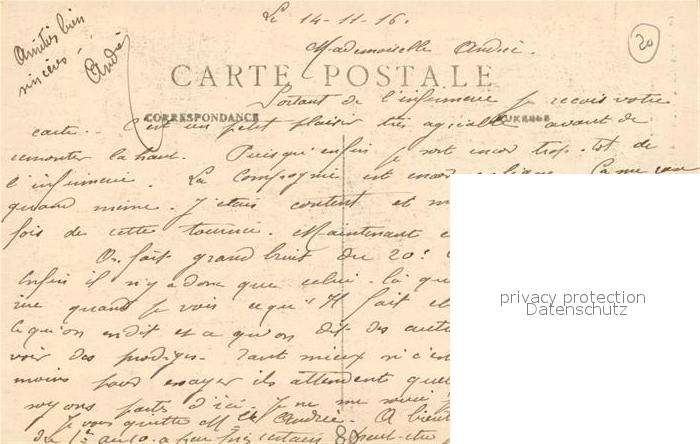 Le 14-11-16.
Mademoiselle Andrée.
20
Amitiés bien
sincères,
André
CARTE POSTALE
CORRESPONDANCE
Sortant de l'infirmerie je reçois votre
carte.. C'est un petit plaisir très agréable avant de
remonter là haut. Puisqu'enfin je sort encor trop tôt de
l'infirmerie. La Compagnie est encor Ça me va
quand même. J'étais content et
fois de cette tournée. Maintenant
On fait grand bruit du 20e
Enfin il n'y a donc que celui-là
rire quand je vois ce qu'Il fait et
Ce qu'on en dit et ce qu'on dit des
voir des prodiges. Tant mieux si c'en
moins pour essayer ils attendent que
soyons partis d'ici. Je ne me
Je vous quitte Mlle Andrée. A
80
privacy protection
Datenschutz